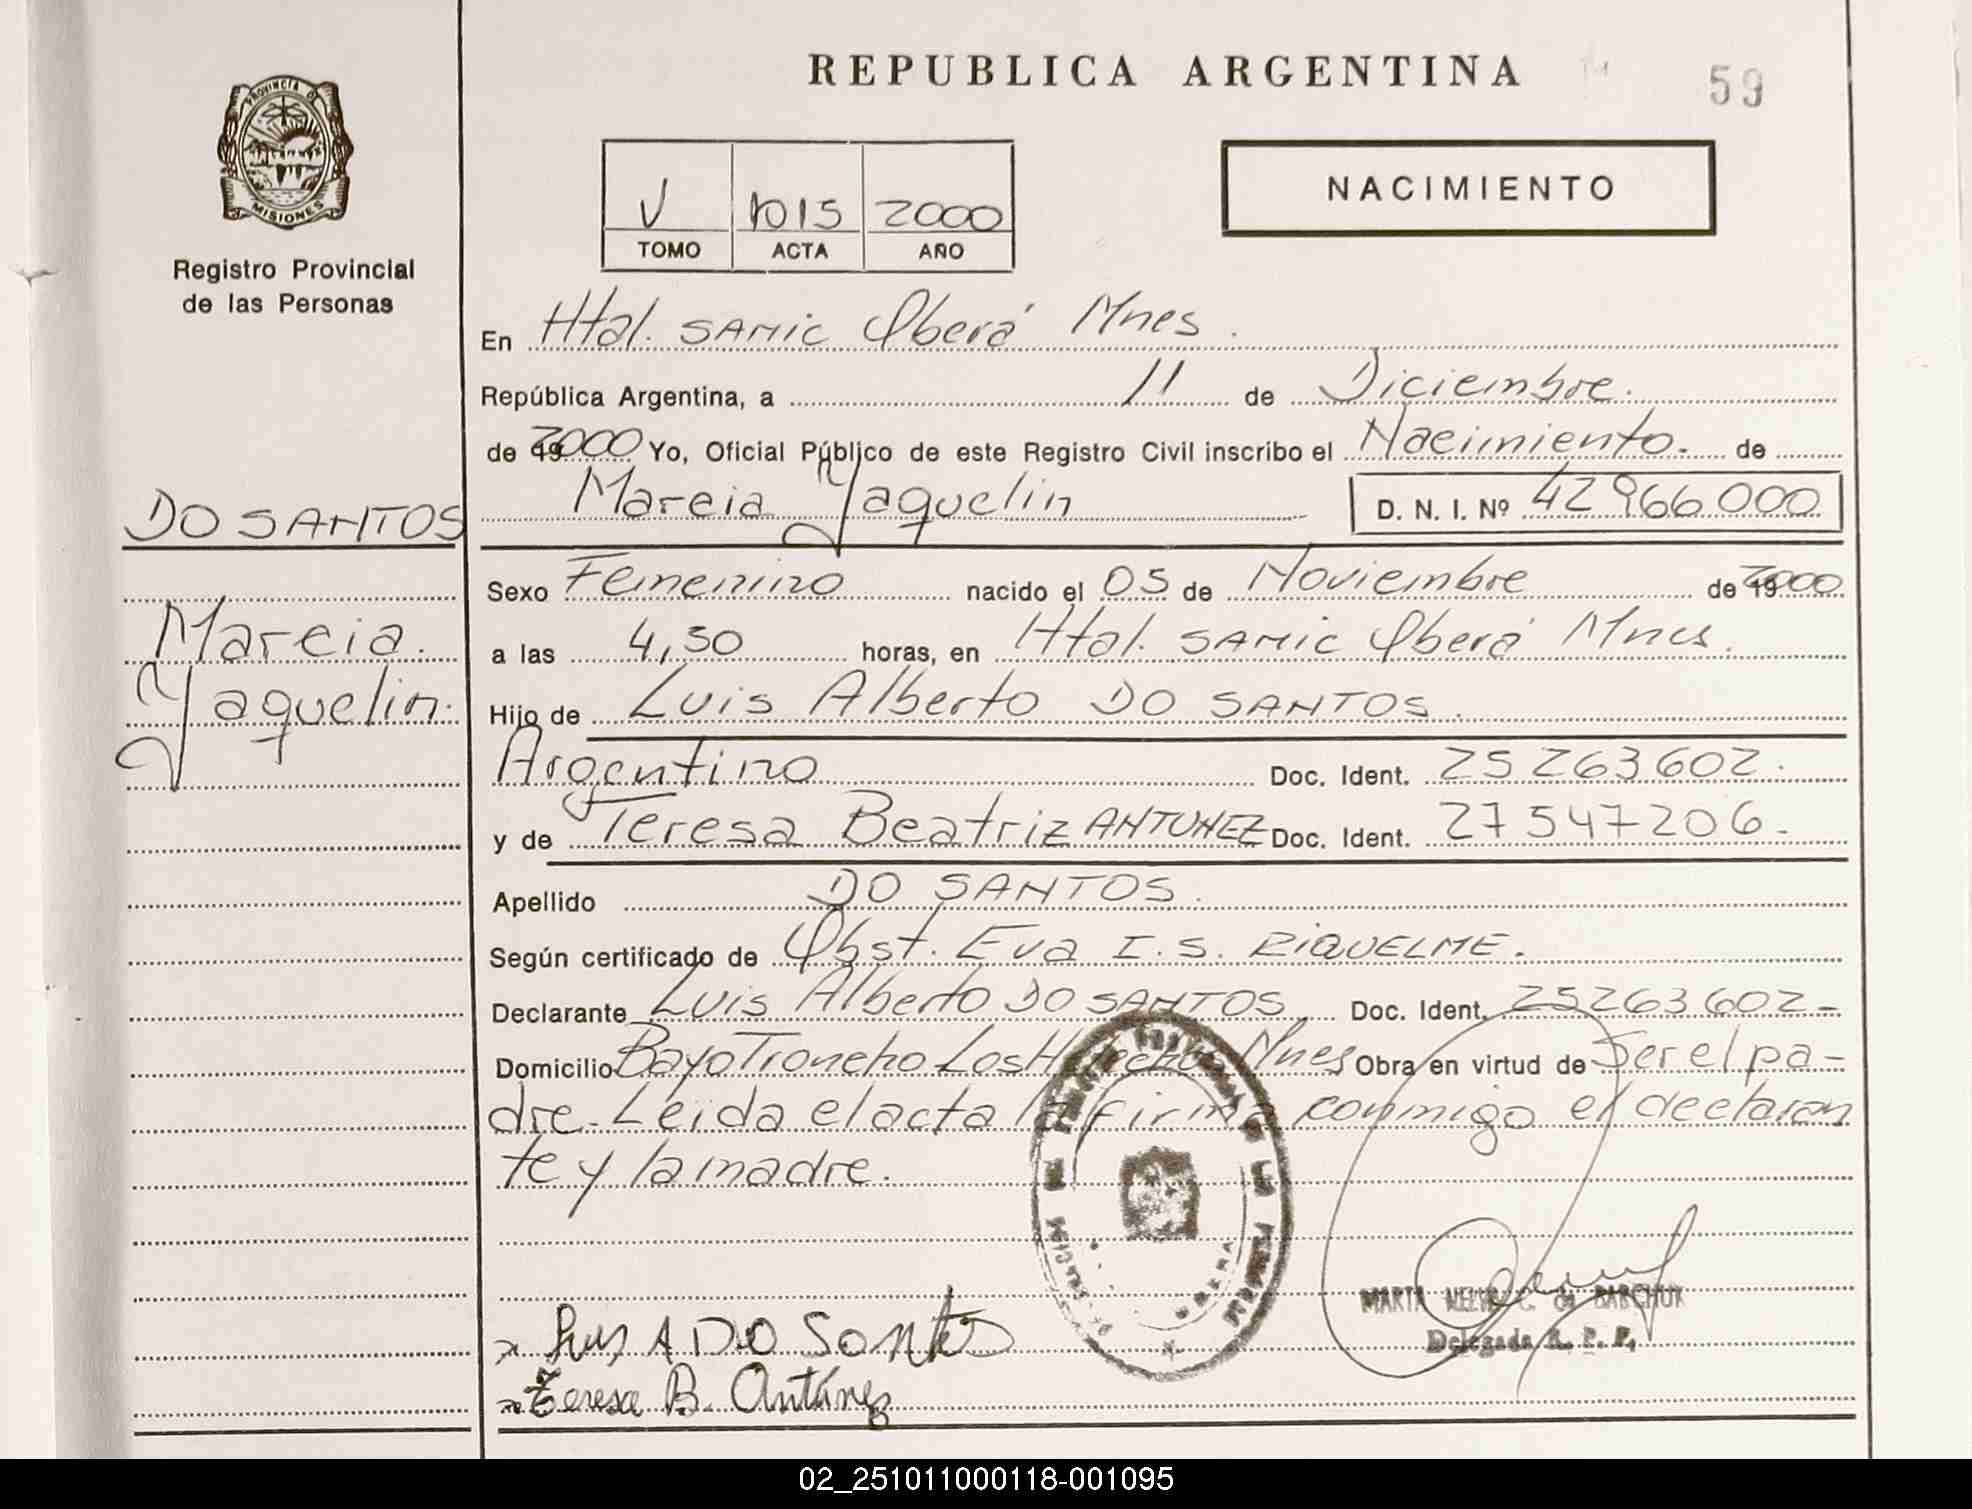 REPUBLICA ARGENTINA
59
PROVINCIA DE
MISIONES
Registro Provincial
de las Personas
NACIMIENTO
V 1015 2000
TOMO ACTA AÑO
En Htal. SAMIC Oberá Mnes.
República Argentina, a 11 de Diciembre.
de 2000 Yo, Oficial Público de este Registro Civil inscribo el Nacimiento. de
Marcia Yaquelin D. N. I. Nº 42966000
DO SANTOS
Marcia
Yaquelin.
Sexo Femenino nacido el 05 de Noviembre de 2000
a las 4,30 horas, en Htal. SAMIC Oberá Mnes.
Hijo de Luis Alberto DO SANTOS.
Argentino Doc. Ident. 25263602.
y de Teresa Beatriz ANTUNEZ Doc. Ident. 27547206.
Apellido DO SANTOS.
Según certificado de Obst. Eva I. S. RIQUELME.
Declarante Luis Alberto DO SANTOS Doc. Ident. 25263602-
Domicilio Bayo Troncho Los Mnes Obra en virtud de Ser el pa-
dre. Leida el acta la firma conmigo el declaran
te y la madre.
Luis A DO Santos
Teresa B. Antúnez
MARTA C. de BABCHUK
Delegada R. P. P.
02_251011000118-001095